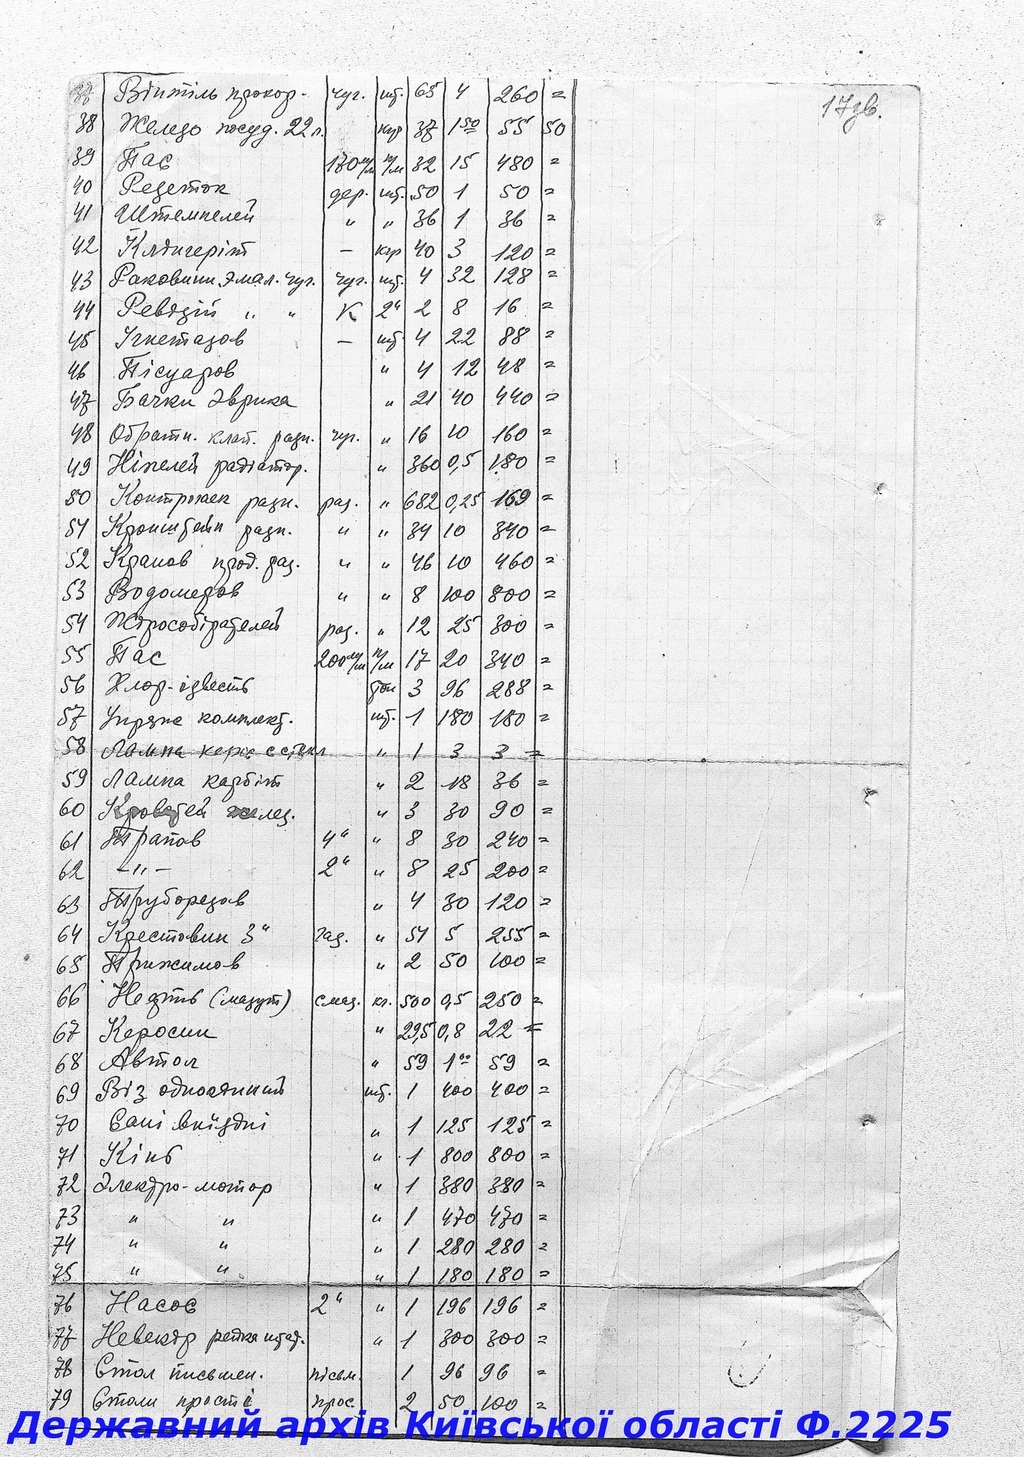 17зв.
37 Вінтіль прохор. чуг. шт. 65 4 260 =
38 Железо посуд. 22 л. клр 37 1 50 55 50
39 Пас 170 м/м п/м 32 15 480 =
40 Розеток дер. шт. 50 1 50 =
41 Штемпелей " " 36 1 36 =
42 Клінгеріт – клр 40 3 120 =
43 Раковини эмал. чуг. чуг. шт. 4 32 128 =
44 Ревізій " " К 2" 2 8 16 =
45 – шт 4 22 88 =
46 Пісуаров " 4 12 48 =
47 Бачки Эврика " 21 40 440 =
48 Обратн. клап. разн. чуг. " 16 10 160 =
49 Ніпелей радіатор. " 360 0,5 180 =
50 Контргаек разн. раз. " 682 0,25 169 =
51 Кронштейн разн. " " 34 10 340 =
52 Кранов прод. раз. " " 46 10 460 =
53 Водомеров " " 8 100 800 =
54 Жірособірателей раз. " 12 25 300 =
55 Пас 200 м/м п/м 17 20 340 =
56 Хлор-ізвесть тон 3 96 288 =
57 Упряж комплект. шт. 1 180 180 =
58 Лампа керос с стікл " 1 3 3 =
59 Лампа карбіт " 2 18 36 =
60 Кроватей желез. " 3 30 90 =
61 Трапов 4" " 8 30 240 =
62 –"– 2" " 8 25 200 =
63 Труборезов " 4 30 120 =
64 Крестовин 3" газ. " 51 5 255 =
65 Прижимов " 2 50 100 =
66 Нефть (мазут) смаз. кг. 500 0,5 250 =
67 Керосин " 29,5 0,8 22 =
68 Автол " 59 1 00 59 =
69 Віз одноконний шт. 1 400 400 =
70 Сані виїздні " 1 125 125 =
71 Кінь " 1 800 800 =
72 Электро-мотор " 1 380 380 =
73 " " " 1 470 470 =
74 " " " 1 280 280 =
75 " " " 1 180 180 =
76 Насос 2" " 1 196 196 =
77 " 1 300 300 =
78 Стол письмен. пісьм. 1 96 96 =
79 Столи прості прос. 2 50 100 =
Державний архів Київської області Ф.2225